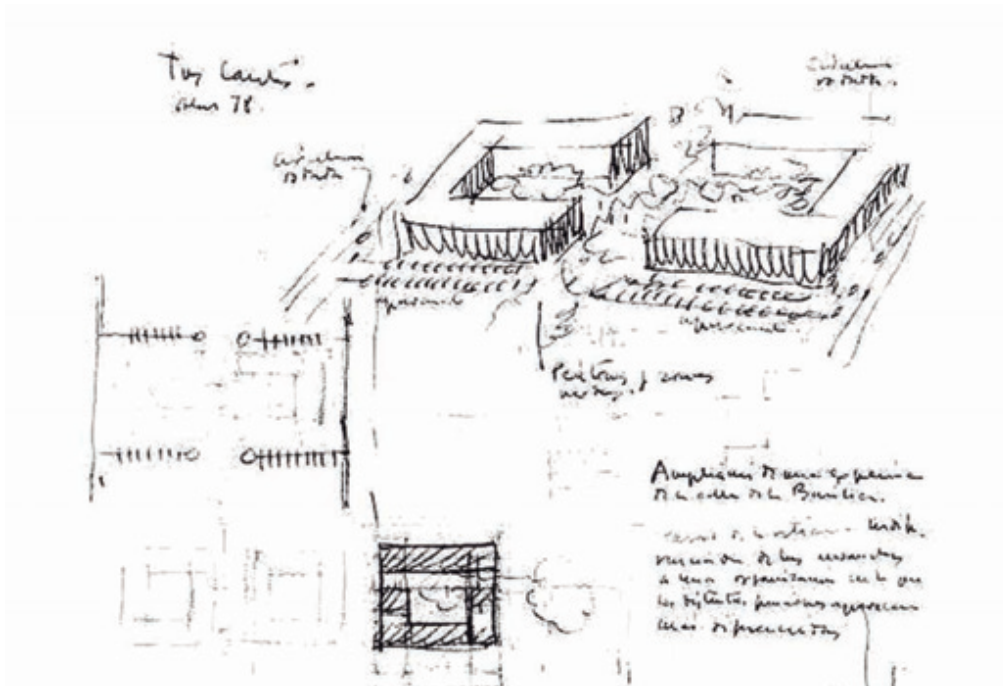 Tres Cantos.
78.
Circulación
rodada.
Circulación
rodada
aparcamiento
aparcamiento.
Peatones y zonas
verdes.
Ampliación de una experiencia
de la calle de la Basílica.
de las manzanas
a una organización en la que
las distintas funciones aparecen
más diferenciadas